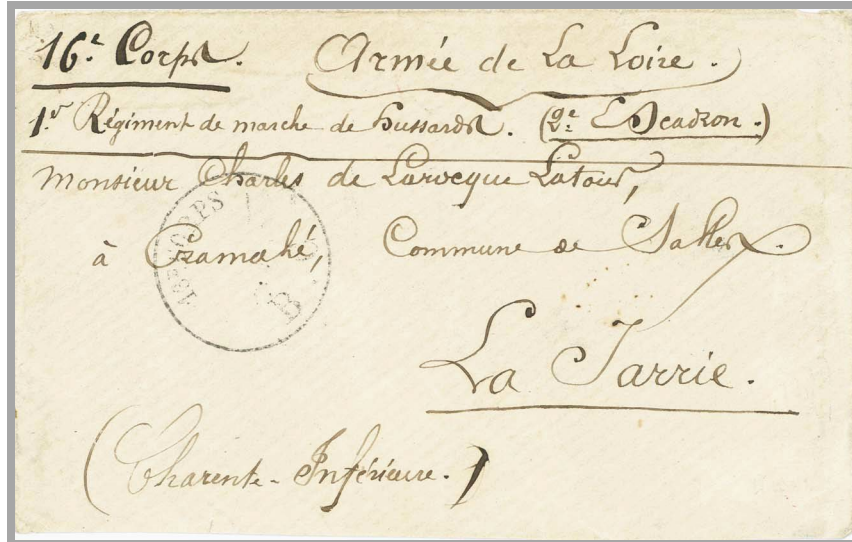 16e Corps. Armée de La Loire.
1er Régiment de marche de hussards. (2e Escadron.)
Monsieur Charles de Larocque Latour,
à Cramahé, Commune de Salles.
CORPS
B
La Jarrie.
(Charente-Inférieure.)